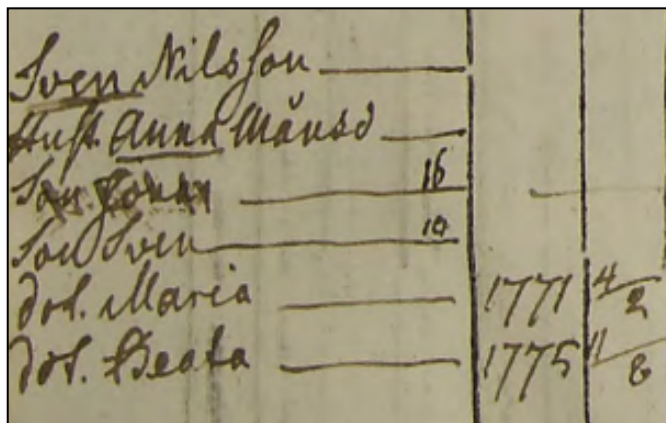 Sven Nilsson
Hust. Anna Månsd
Son 16
Son Sven 10
dot. Maria 1771 4/2
dot. Beata 1775 11/8